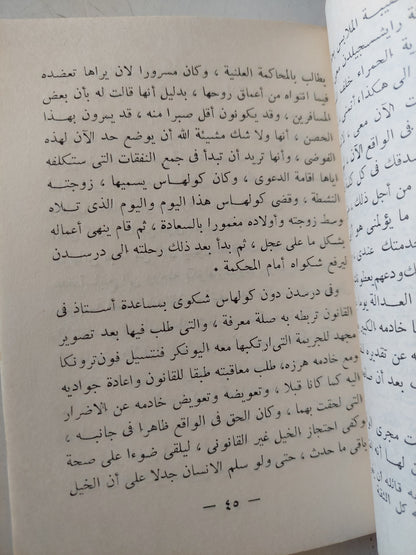 يطالب بالمحاكمة العلنية ، وكان مسرورا لان يراها تعضده
فيما انتواه من أعماق روحها ، بدليل أنها قالت له بأن بعض
المسافرين ، وقد يكونون أقل صبرا منه ، قد يمرون بهذا
الحصن ، أنها ولا شك مشيئة الله أن يوضع حد الآن لهذه
الفوضى ، وأنها تريد أن تبدأ فى جمع النفقات التى ستكلفه
اياها اقامة الدعوى ، وكان كولهاس يسميها ، زوجته
النشطة ، وقضى كولهاس هذا اليوم واليوم الذى تلاه
وسط زوجته وأولاده مغمورا بالسعادة ، ثم قام ينهى أعماله
بشكل ما على عجل ، ثم بدأ بعد ذلك رحلته الى درسدن
ليرفع شكواه أمام المحكمة .
وفى درسدن دون كولهاس شكوى بمساعدة أستاذ فى
القانون تربطه به صلة معرفة ، والتى طلب فيها بعد تصوير
مجهد للجريمة التى ارتكبها معه اليونكر فنتسيل فون ترونكا
ومع خادمه هرزه، طلب معاقبته طبقا للقانون واعادة جواديه
اليه كما كانا قبلا ، وتعويضه وتعويض خادمه عن الاضرار
التى لحقت بهما . وكان الحق فى الواقع ظاهرا فى جانبه ،
وكفى احتجاز الخيل غير القانونى ، ليلقى ضوءا على صحة
باقى ما حدث ، حتى ولو سلم الانسان جدلا على أن الخيل
— ٤٥ —